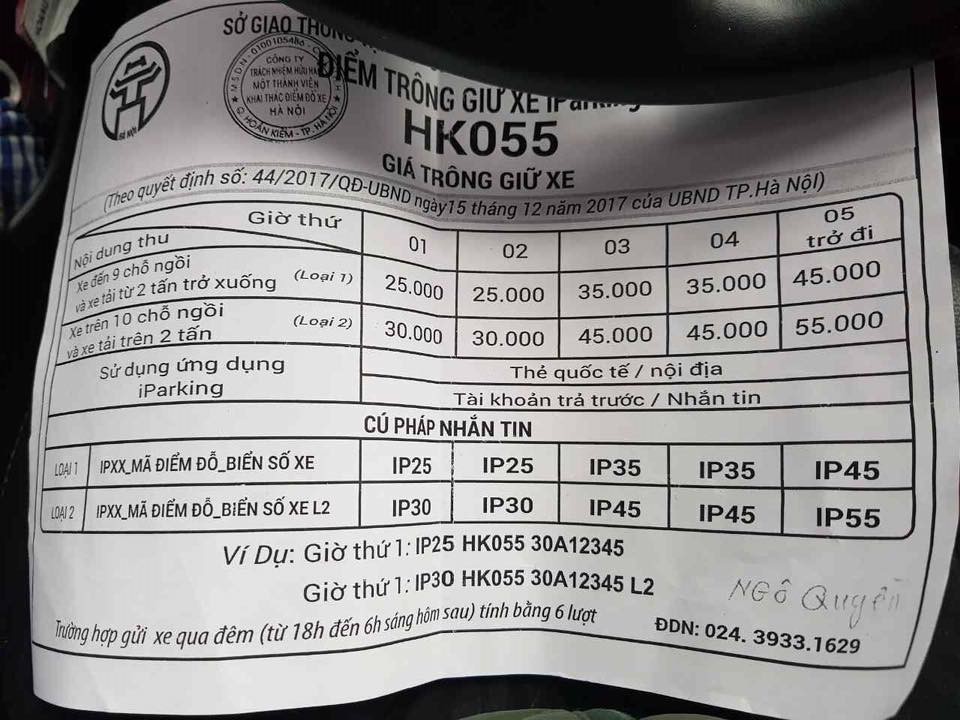 SỞ GIAO THÔNG
HÀ NỘI
M.S.D.N: 0100105486 - C
CÔNG TY
TRÁCH NHIỆM HỮU HẠ
MỘT THÀNH VIÊN
KHAI THÁC ĐIỂM ĐỖ XE
HÀ NỘI
Q. HOÀN KIẾM - TP. HÀ NỘI
ĐIỂM TRÔNG GIỮ XE iParking
HK055
GIÁ TRÔNG GIỮ XE
(Theo quyết định số: 44/2017/QĐ-UBND ngày15 tháng 12 năm 2017 của UBND TP.Hà Nội)
Nội dung thu Giờ thứ 01 02 03 04 05 trở đi
Xe đến 9 chỗ ngồi
và xe tải từ 2 tấn trở xuống (Loại 1) 25.000 25.000 35.000 35.000 45.000
Xe trên 10 chỗ ngồi
và xe tải trên 2 tấn (Loại 2) 30.000 30.000 45.000 45.000 55.000
Sử dụng ứng dụng
iParking
Thẻ quốc tế / nội địa
Tài khoản trả trước / Nhắn tin
CÚ PHÁP NHẮN TIN
LOẠI 1 IPXX_MÃ ĐIỂM ĐỖ_BIỂN SỐ XE IP25 IP25 IP35 IP35 IP45
LOẠI 2 IPXX_MÃ ĐIỂM ĐỖ_BIỂN SỐ XE L2 IP30 IP30 IP45 IP45 IP55
Ví Dụ: Giờ thứ 1: IP25 HK055 30A12345
Giờ thứ 1: IP30 HK055 30A12345 L2
NGÔ Quyền
Trường hợp gửi xe qua đêm (từ 18h đến 6h sáng hôm sau) tính bằng 6 lượt
ĐDN: 024. 3933.1629